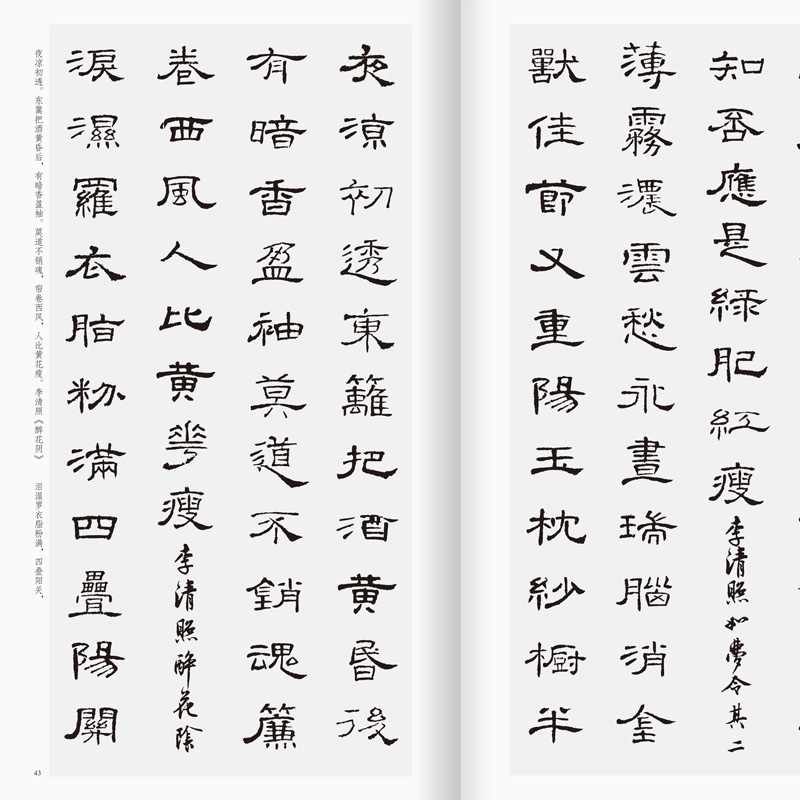 知否應是綠肥紅瘦 李清照如夢令其二
薄霧濃雲愁永晝瑞腦消金
獸佳節又重陽玉枕紗橱半
夜涼初透東籬把酒黄昏後
有暗香盈袖莫道不銷魂簾
卷西風人比黄花瘦 李清照醉花陰
淚濕羅衣脂粉滿四疊陽關
夜凉初透。东篱把酒黄昏后，有暗香盈袖。莫道不销魂，帘卷西风，人比黄花瘦。李清照《醉花阴》 泪湿罗衣脂粉满，四叠阳关，
43